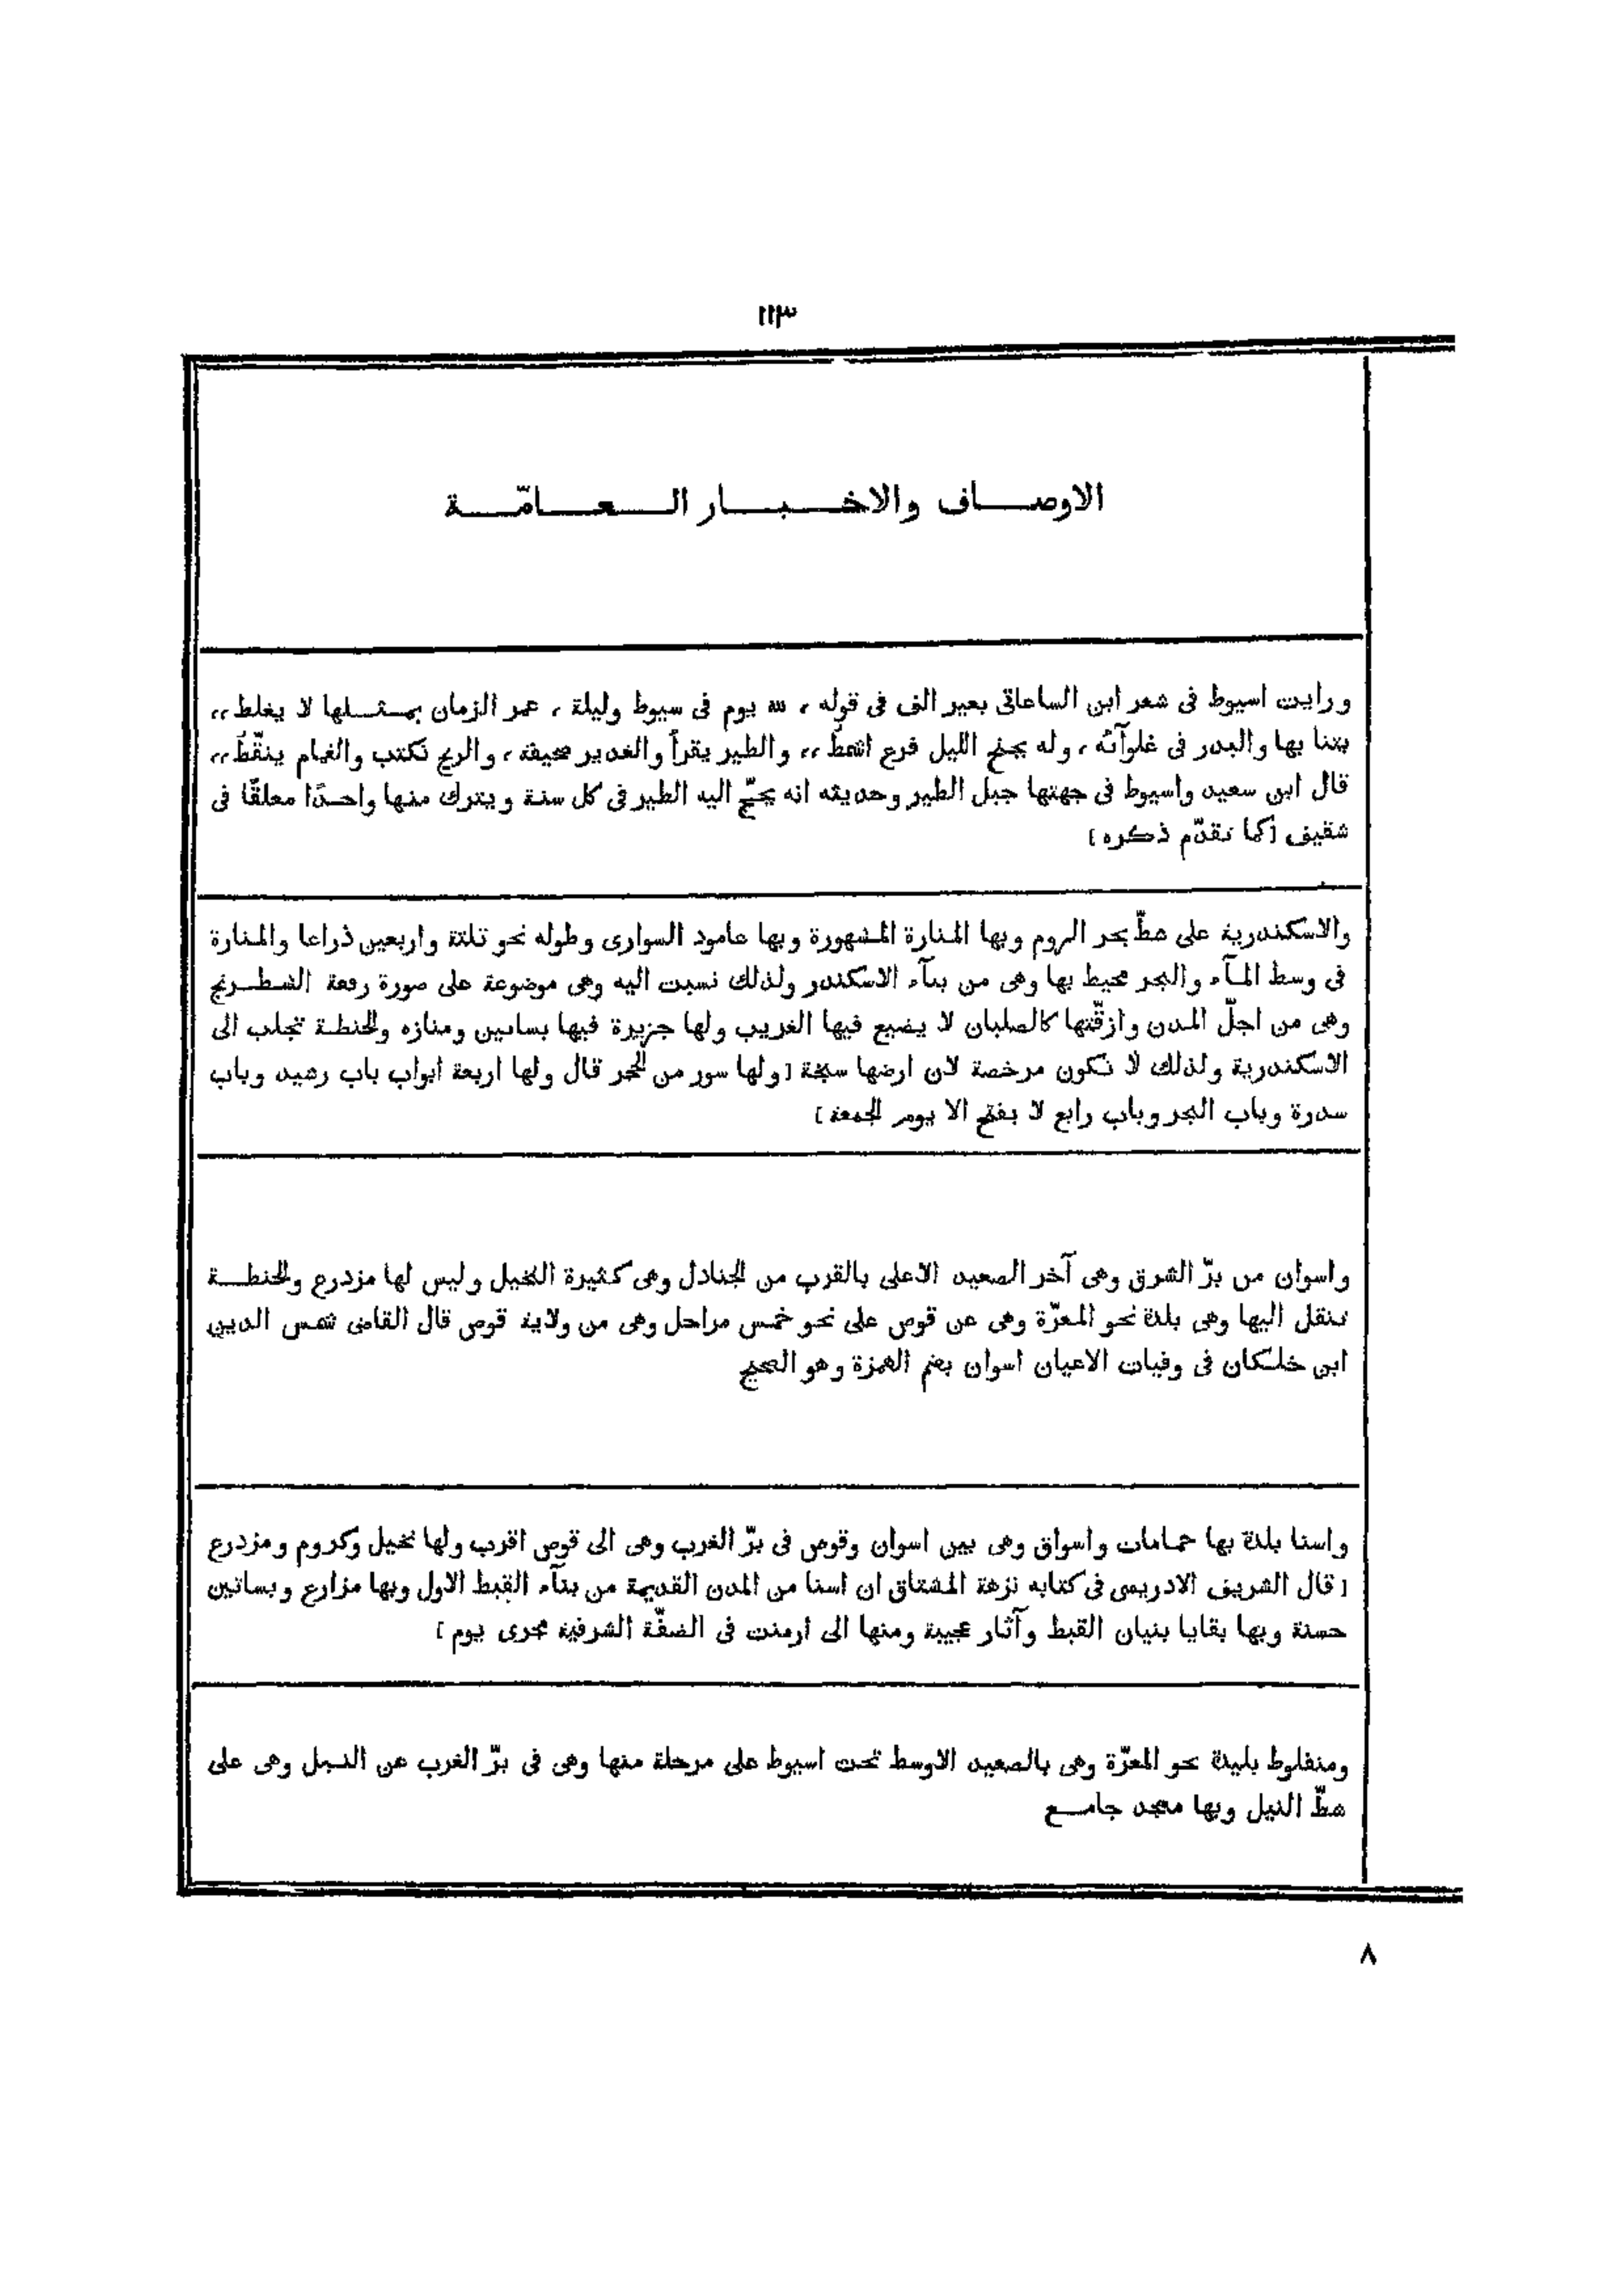 ١١٣
الاوصاف والاخبار العامّة
ورايت اسيوط فى شعر ابن الساعاتى بغير الف فى قوله ، لله يوم فى سيوط وليلة ، عمر الزمان بمثلها لا يغلط ،،
بتنا بها والبدر فى غلوآئه ، وله بجنح الليل فرع اشمطَ ،، والطير يقرأ والغدير صحيفة ، والريح تكتب والغمام ينقّطَ ،،
قال ابن سعيد واسيوط فى جهتها جبل الطير وحديثه انه يحجّ اليه الطير فى كل سنة ويترك منها واحدًا معلقًا فى
شقيف [كما تقدّم ذكره]
والاسكندرية على شطّ بحر الروم وبها المنارة المشهورة وبها عامود السوارى وطوله نحو ثلثة واربعين ذراعا والمنارة
فى وسط المآء والبحر محيط بها وهى من بنآء الاسكندر ولذلك نسبت اليه وهى موضوعة على صورة رقعة الشطرنج
وهى من اجلّ المدن وازقّتها كالصلبان لا يضيع فيها الغريب ولها جزيرة فيها بساتين ومنازه والحنطة تجلب الى
الاسكندرية ولذلك لا تكون مرخصة لان ارضها سبخة [ولها سور من الحجر قال ولها اربعة ابواب باب رشيد وباب
سدرة وباب البحر وباب رابع لا يفتح الا يوم الجمعة]
واسوان من برّ الشرق وهى آخر الصعيد الاعلى بالقرب من الجنادل وهى كثيرة النخيل وليس لها مزدرع والحنطة
تنقل اليها وهى بلدة نحو المعرّة وهى عن قوص على نحو خمس مراحل وهى من ولاية قوص قال القاضى شمس الدين
ابن خلكان فى وفيات الاعيان اسوان بضم الهمزة وهو الصحيح
واسنا بلدة بها حمامات واسواق وهى بين اسوان وقوص فى برّ الغرب وهى الى قوص اقرب ولها نخيل وكروم ومزدرع
[قال الشريف الادريسى فى كتابه نزهة المشتاق ان اسنا من المدن القديمة من بنآء القبط الاول وبها مزارع وبساتين
حسنة وبها بقايا بنيان القبط وآثار عجيبة ومنها الى ارمنت فى الضفّة الشرقية مجرى يوم]
ومنفلوط بليدة نحو المعرّة وهى بالصعيد الاوسط تحت اسيوط على مرحلة منها وهى فى برّ الغرب عن النيل وهى على
شطّ النيل وبها مسجد جامع
٨